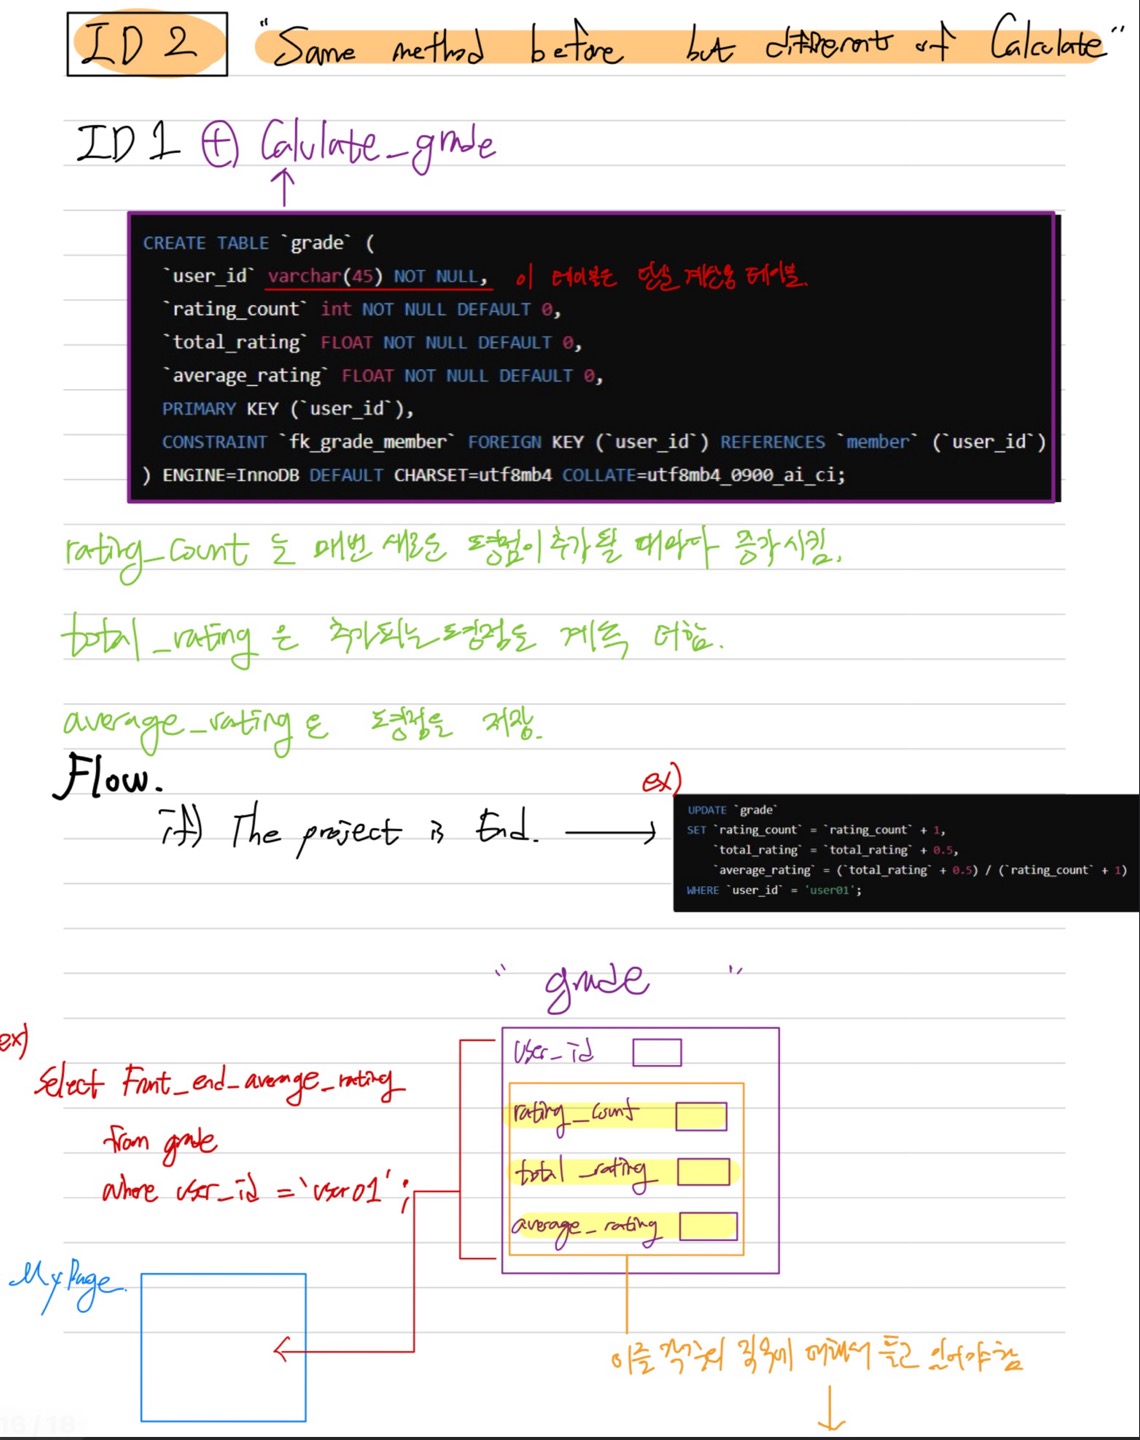 ID 2 "Same method before but different of Calculate"
ID 1 ⊕ Calulate_grade
CREATE TABLE `grade` (
`user_id` varchar(45) NOT NULL, 이 테이블은 단순 계산용 테이블.
`rating_count` int NOT NULL DEFAULT 0,
`total_rating` FLOAT NOT NULL DEFAULT 0,
`average_rating` FLOAT NOT NULL DEFAULT 0,
PRIMARY KEY (`user_id`),
CONSTRAINT `fk_grade_member` FOREIGN KEY (`user_id`) REFERENCES `member` (`user_id`)
) ENGINE=InnoDB DEFAULT CHARSET=utf8mb4 COLLATE=utf8mb4_0900_ai_ci;
rating_count 는 매번 새로운 평점이 추가될 때마다 증가시킴.
total_rating은 추가되는 평점을 계속 더함.
average_rating은 평점을 저장.
Flow.
if) The project is End. →
ex)
UPDATE `grade`
SET `rating_count` = `rating_count` + 1,
`total_rating` = `total_rating` + 0.5,
`average_rating` = (`total_rating` + 0.5) / (`rating_count` + 1)
WHERE `user_id` = 'user01';
" grade "
user_id
rating_count
total_rating
average_rating
ex)
Select Front_end_average_rating
from grade
where user_id = 'user01';
My Page.
이를 각각의 직무에 대해서 들고 있어야 함
16 / 18